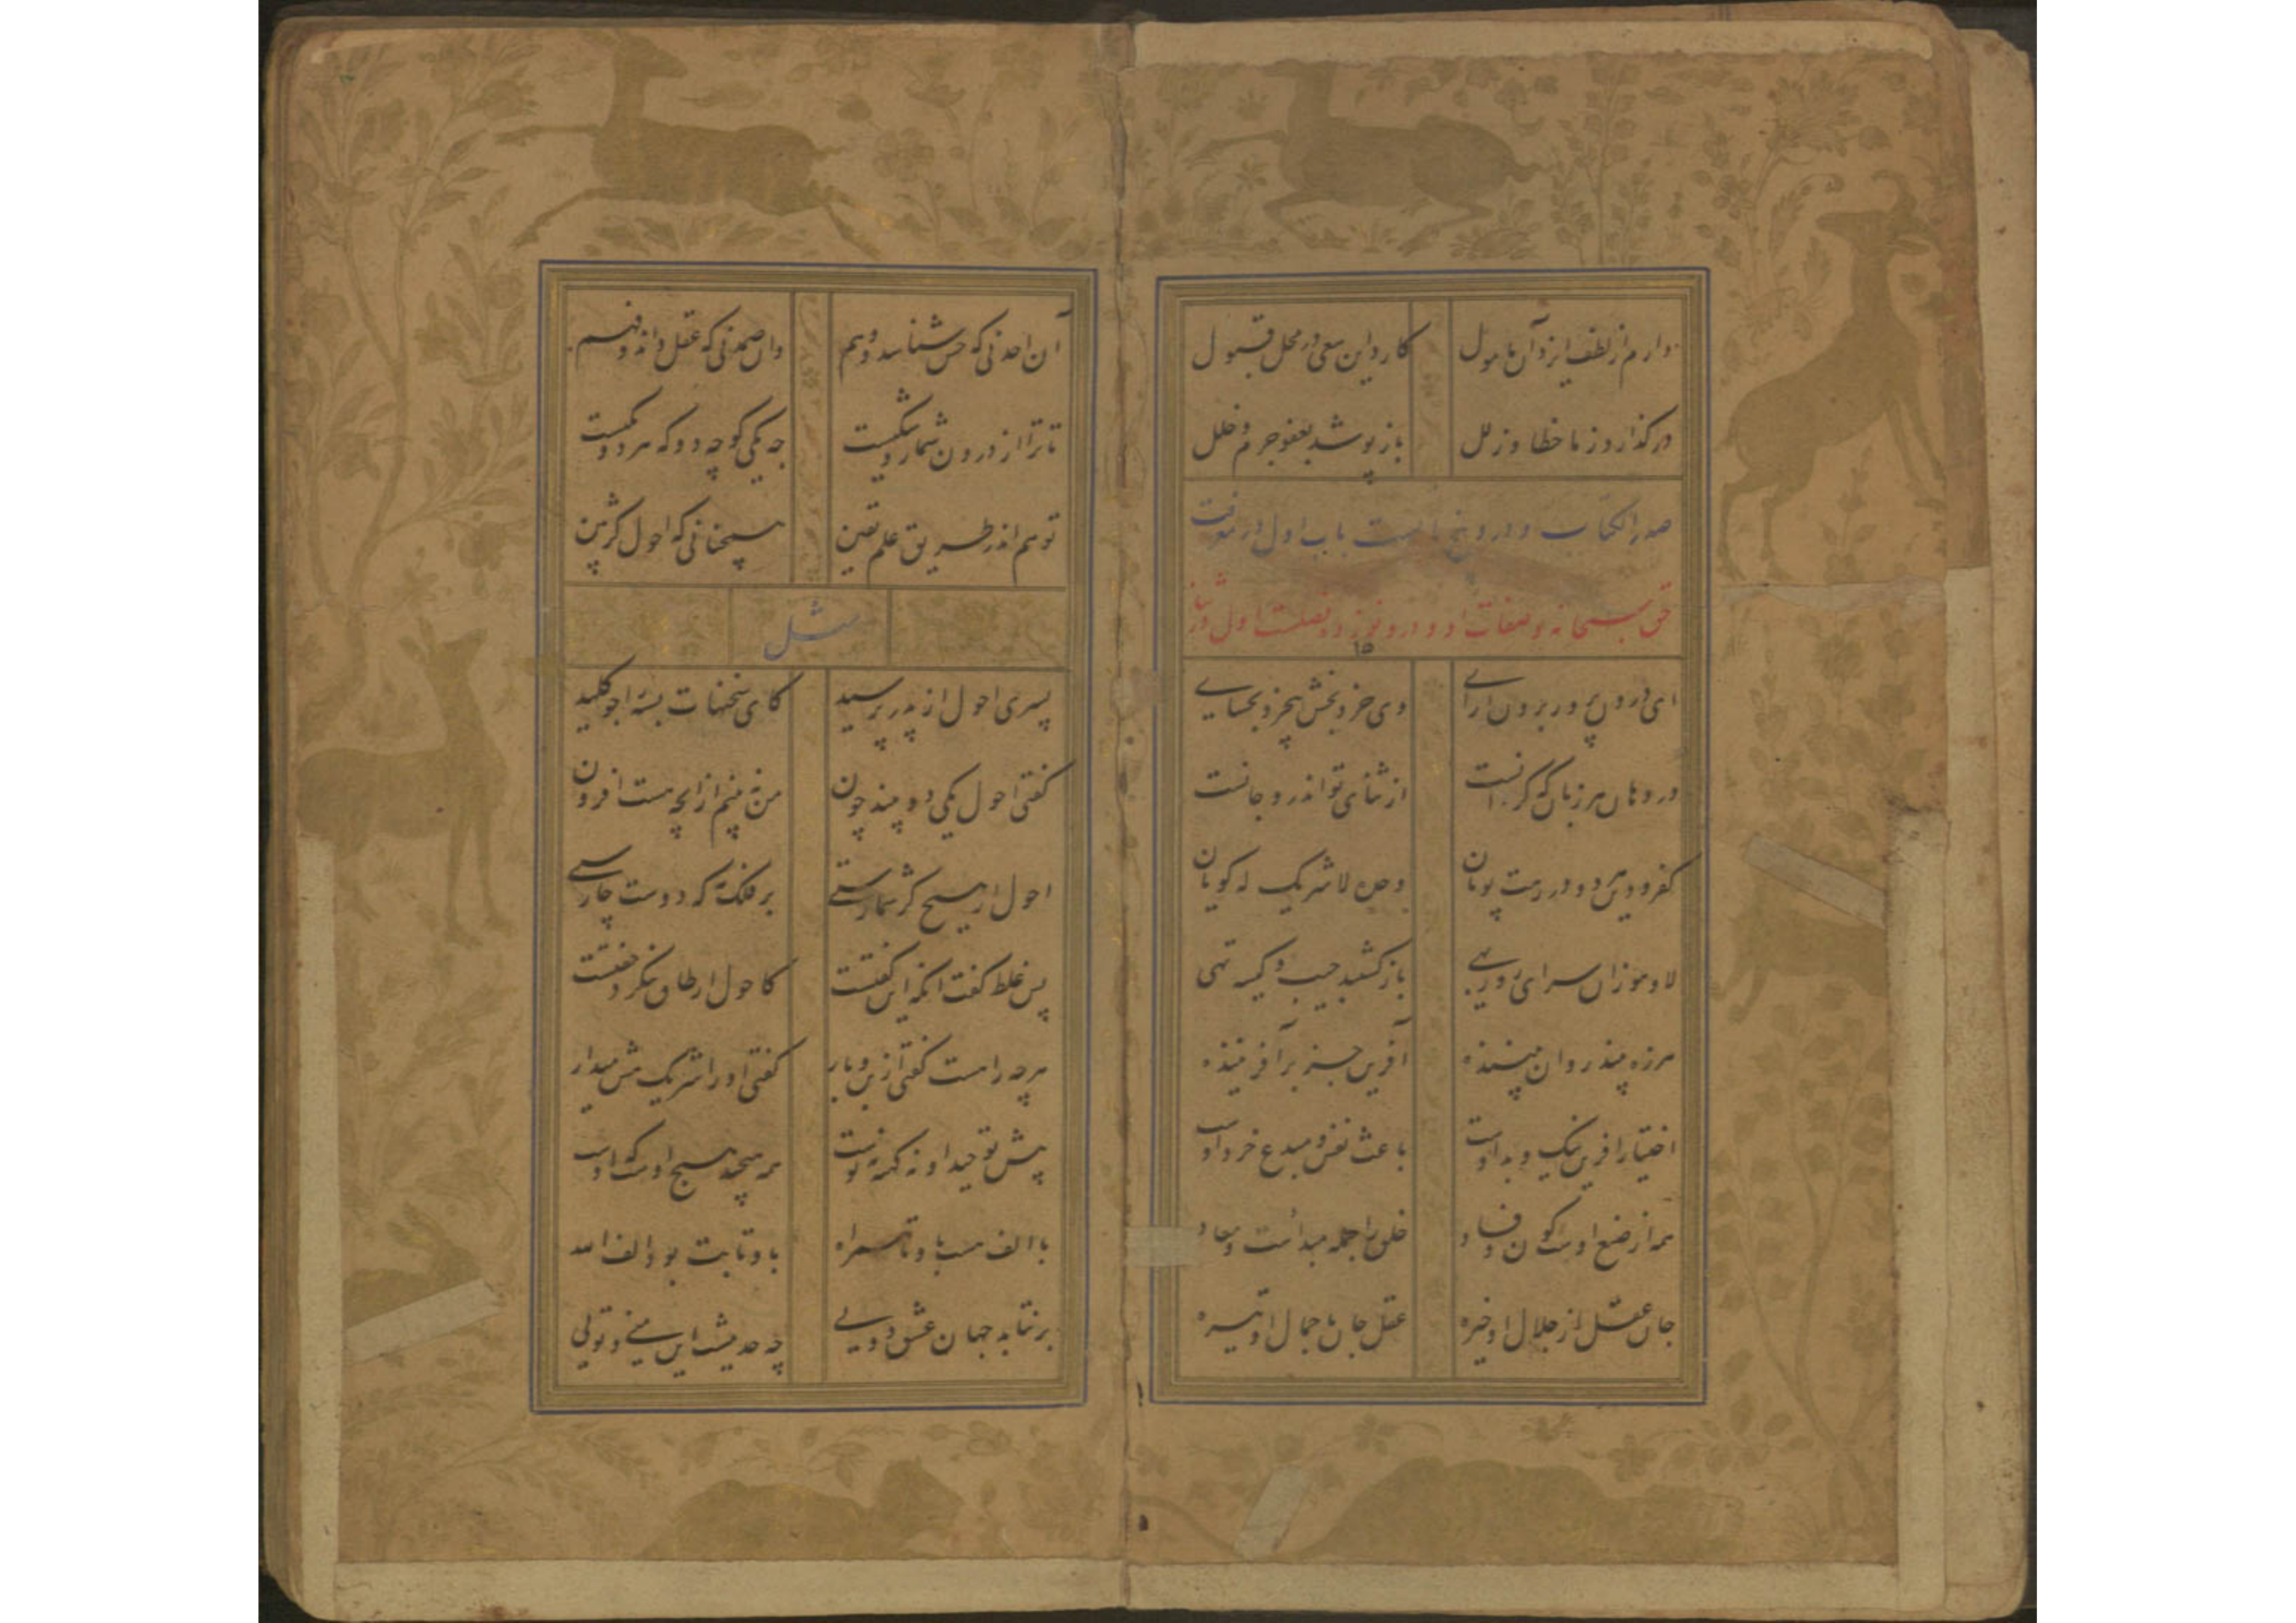 دارم از لطف ایزد آن مامول کارد این سعی در محل قبول
درگذارد ز ما خطا و زلل باز پوشد بعفو جرم و خلل
صدر الکتاب و درو پنج بابست باب اول در معرفت
حق سبحانه و صفات او و درو نوزده فصلست اول در ثنا
۱۵
ای درون پرور برون آرای وی خرد بخش بیخرد بخشای
در دهان هر زبان که گردانست از ثنای تو اندرو جانست
کفر و دین هر دو در رهت پویان وحده لا شریک له گویان
لا و هو زان سرای روزبهی باز گشتند جیب و کیسه تهی
هرزه بیند روان بیننده آفرین جز بر آفریننده
اختیار آفرین نیک و بد اوست باعث نفس و مبدع خرد اوست
همه از صنع اوست کون و فساد خلق را جمله مبدأست و معاد
جان عقل از جلال او خیره عقل جان با جمال او تیره
آن احد نی که حس شناسد و وهم وان صمد نی که عقل داند و فهم
تا ترا از درون شمار و شکیست چه یکی گو چه دو که هر دو یکیست
توهم اندر طریق علم یقین سخنانی که احول کژبین
مثل
پسری احول از پدر پرسید کای سخنهات بسته را چو کلید
گفتی احول یکی دو بیند چون من نه بینم از آنچه هست افزون
احول ار هیچ کژ شمارستی بر فلک مه که دوست چارستی
پس غلط گفت آنکه این گفتست کاحول ار طاق بنگرد جفتست
هرچه راهست گفتی از بن و بار گفتی او را شریک هش میدار
پیش توحید او نه کهنه نوست همه هیچند هیچ اوست که اوست
با الف هست با و تا همراه با و تا بت بود الف الله
برنتابد جهان عشق دویی چه حدیثست این منی و تویی